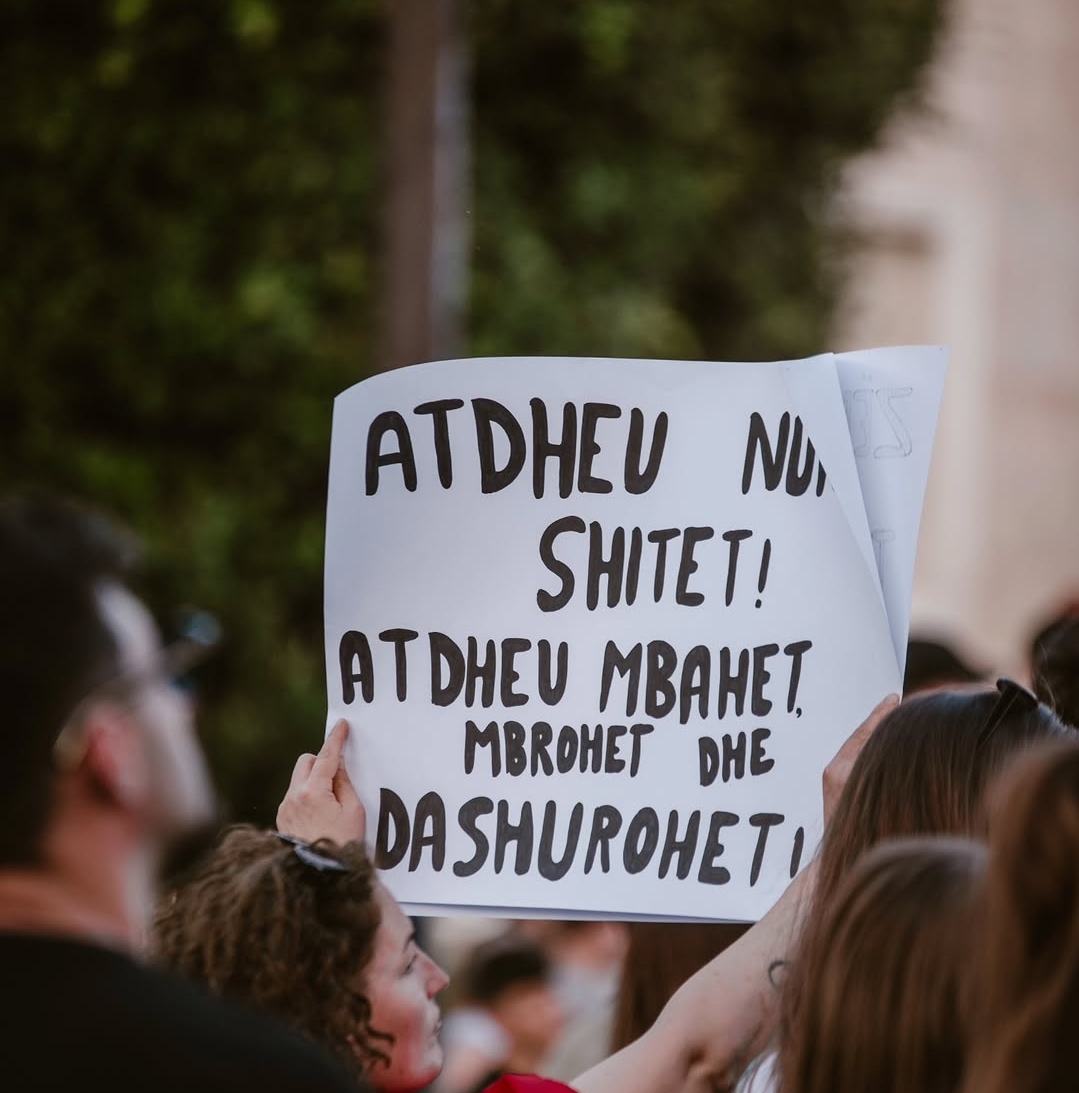 ATDHEU
SHITET!
ATDHEU MBAHET,
MBROHET DHE
DASHUROHET!